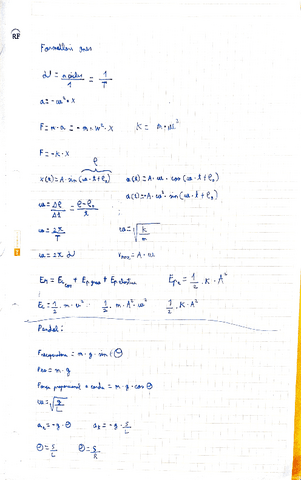 RF
Formulari mas
ν = n cicles / 1 = 1 / T
a = -ω² · x
F = m · a = - m · ω² · x    K = m · ω²
F = -K · x
φ
x(t) = A · sin(ω · t + φ₀)    v(t) = A · ω · cos(ω · t + φ₀)
ω = Δφ / Δt = φ - φ₀ / t    a(t) = -A · ω² · sin(ω · t + φ₀)
ω = 2π / T    ω = √(K / m)
ω = 2π ν    vmax = A · ω
Em = Ec + Ep grav + Ep elastica    Epe = 1/2 · K · A²
Ec = 1/2 · m · v²    1/2 · m · A² · ω²    1/2 · K · A²
Pendol:
Frecuperadora = m · g · sin(Θ)
Pes = m · g
Força proporcional a corda = m · g · cos Θ
ω = √(g / L)
at = -g · Θ    at = -g · s / L
Θ = s / L    Θ = s / R